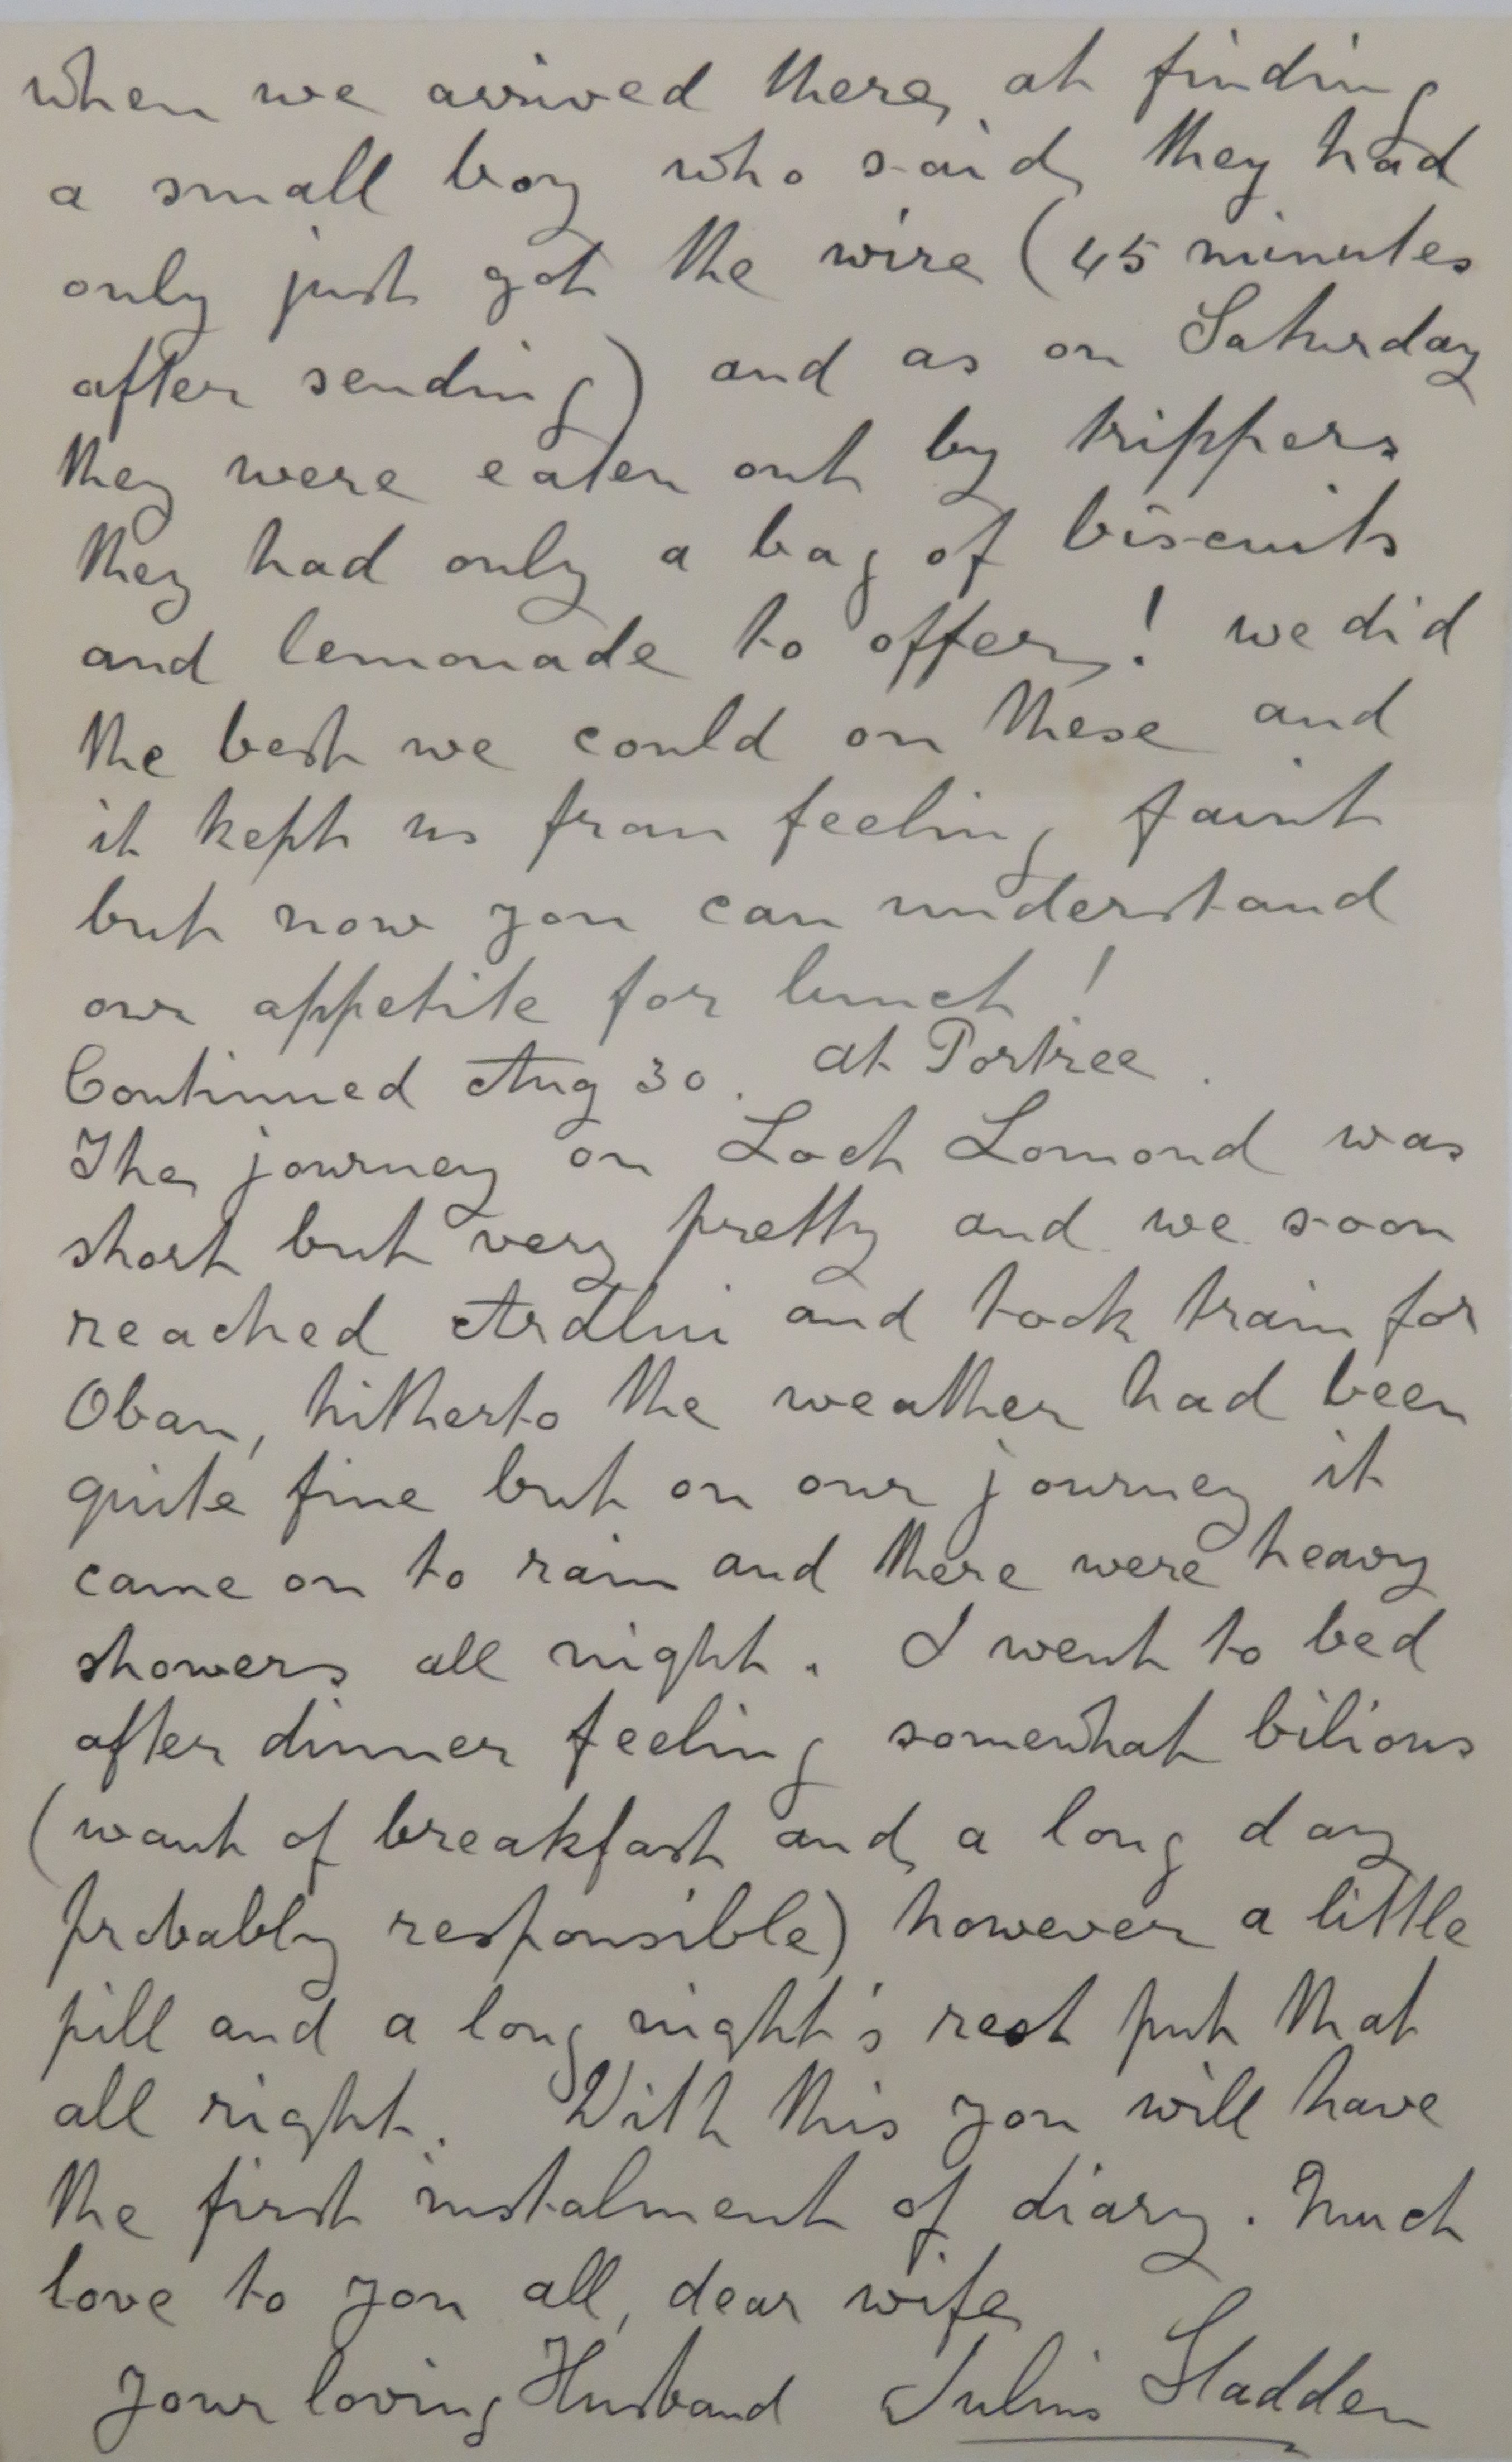 when we arrived there, at finding
a small boy who said, they had
only just got the wire (45 minutes
after sending) and as on Saturday
they were eaten out by trippers
they had only a bag of biscuits
and lemonade to offer,! we did
the best we could on these and
it kept us from feeling faint
but now you can understand
our appetite for lunch!
Continued Aug 30. at Portree.
The journey on Loch Lomond was
short but very pretty and we soon
reached Ardlui and took train for
Oban, hitherto the weather had been
quite fine but on our journey it
came on to rain and there were heavy
showers all night. I went to bed
after dinner feeling somewhat bilious
(want of breakfast and a long day
probably responsible) however a little
pill and a long night's rest put that
all right. With this you will have
the first instalment of diary. Much
love to you all, dear wife
Your loving Husband Julius Sladden